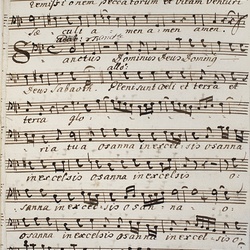 remissionem peccatorum et vitam venturi
sæ culi a men a men amen.
Sanctus Dominus Deus Domin9
allo:
Deus Sabaoth. Pleni sunt cœli et terra et
terra glo
ria tua osanna in excelsis osanna
in excelsis osanna in excelsis o
sanna in excelsis osan na o
osanna in excelsis osanna in excelsis